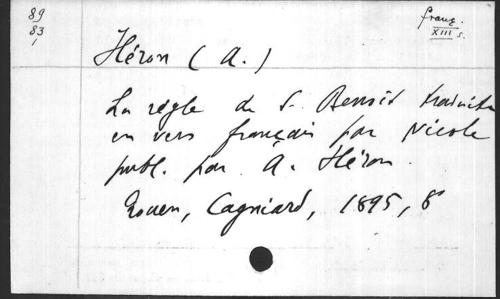 89
83
1
franç.
XIII s.
Héron (A.)
La règle de S. Benoît traduite
en vers français par Nicole
publ. par A. Héron.
Rouen, Cagniard, 1895, 8°